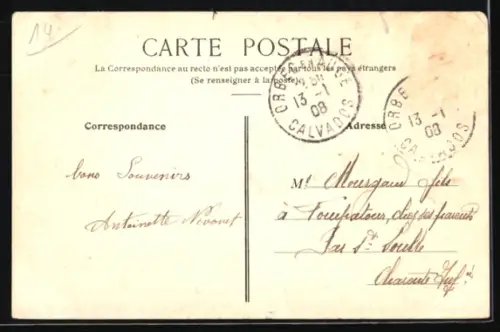 14
CARTE POSTALE
La Correspondance au recto n'est pas acceptée par tous les pays étrangers
(Se renseigner à la poste)
ORBEC EN AUGE
13 - 1
08
CALVADOS
ORBEC
13 - 1
08
CALVADOS
Correspondance
Adresse
bons Souvenirs
Antoinette
Mr Mourgaud fils
à chez ses parents
Par St
Charente Infre